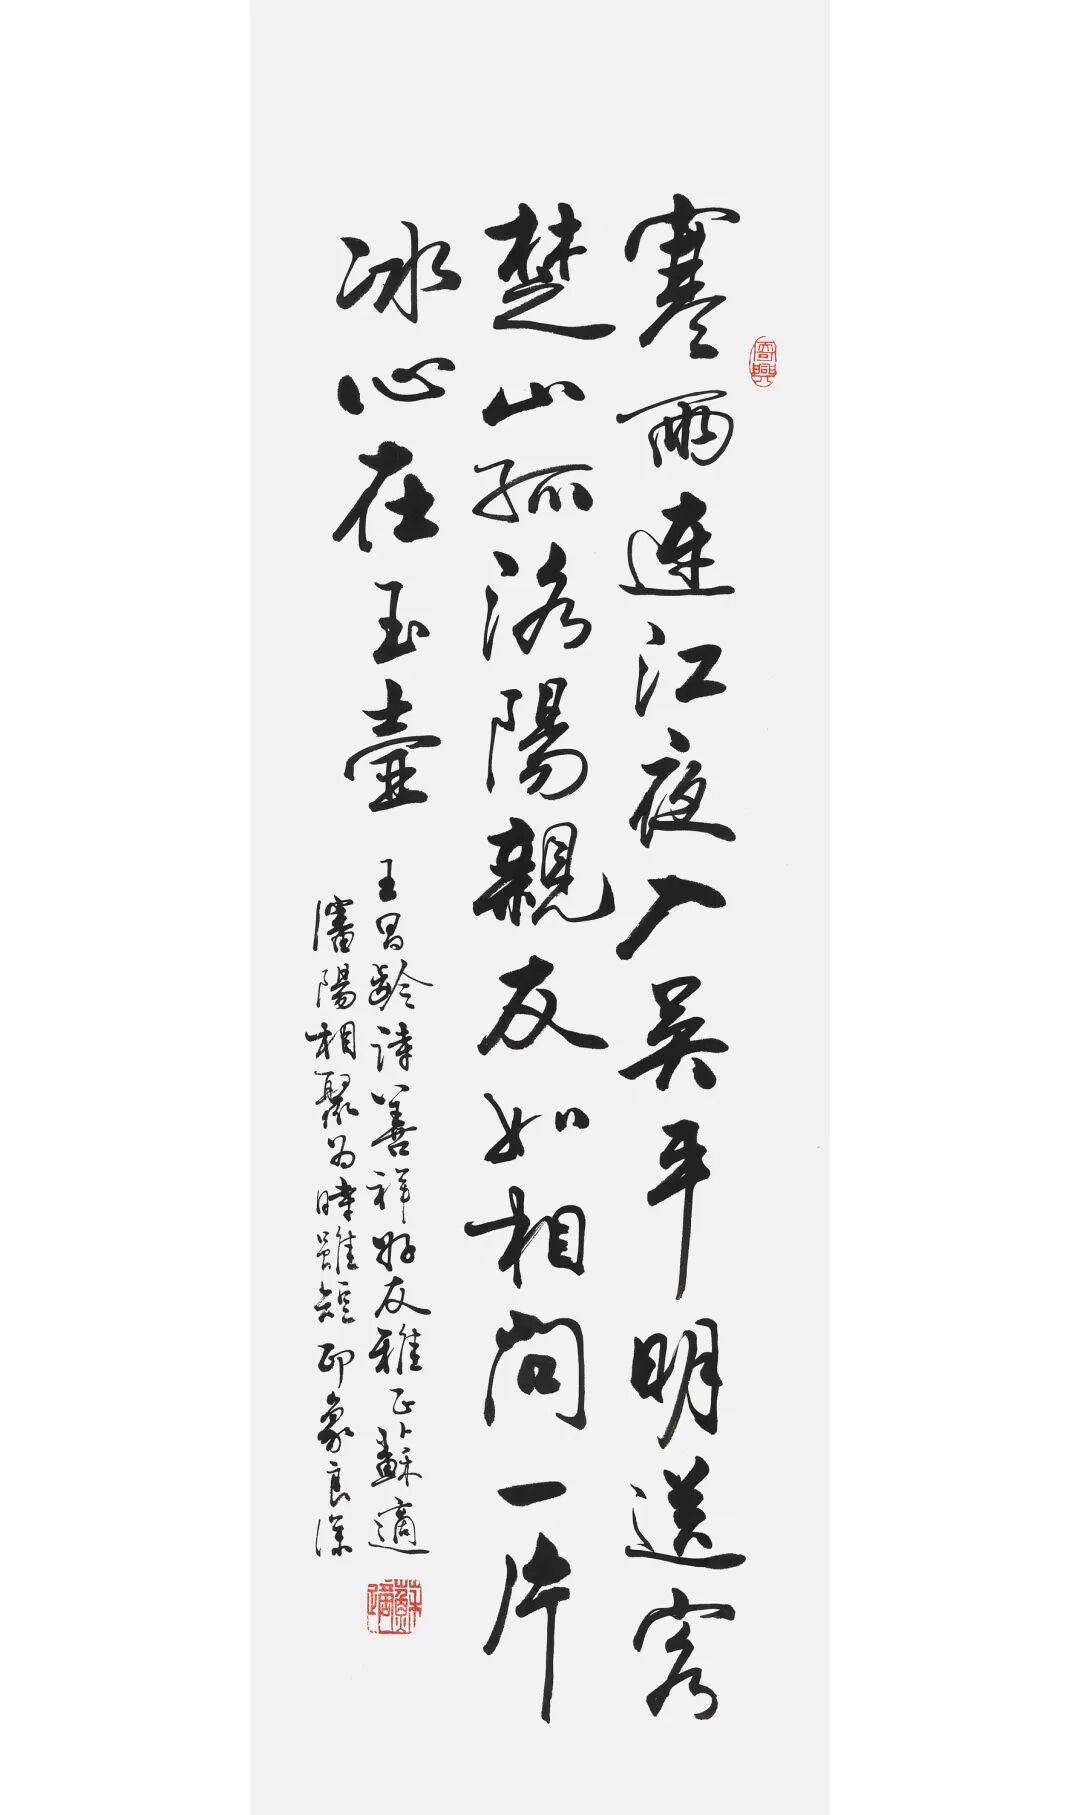 寒雨連江夜入吳平明送客
楚山孤洛陽親友如相問一片
冰心在玉壺
王昌齡詩善祥好友雅正蘇適
瀋陽相聚為時雖短印象良深
蘇適